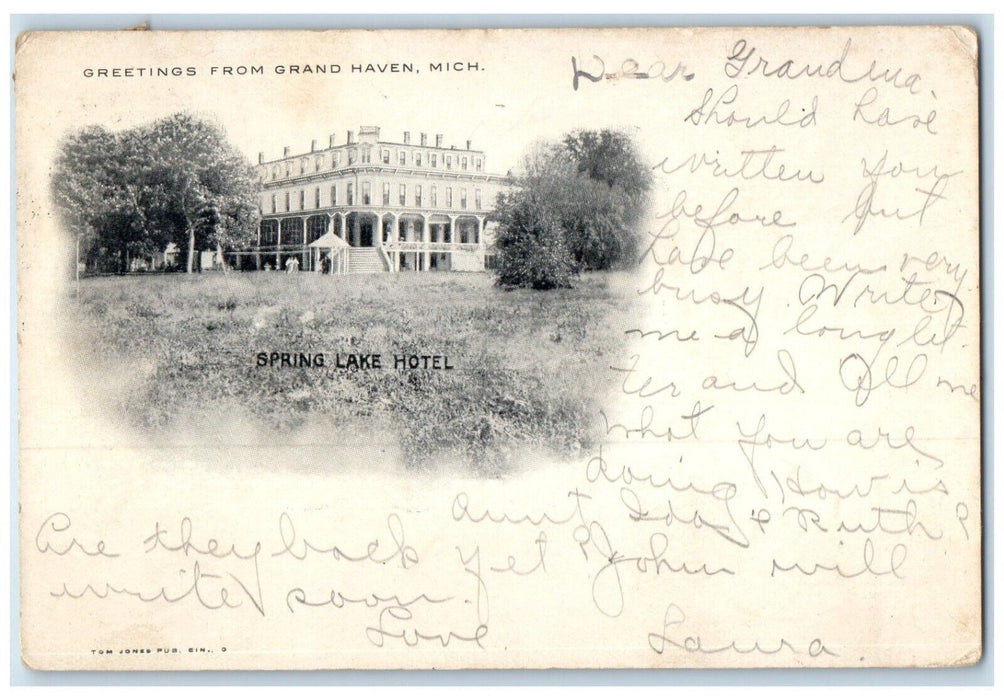 GREETINGS FROM GRAND HAVEN, MICH.
Dear Grandma.
Should have
written you
before but
have been very
busy. Write
me a long let
ter and tell me
what you are
doing. How is
Aunt Ida & Ruth?
Are they back yet? John will
write soon.
Love
Laura.
SPRING LAKE HOTEL
TOM JONES PUB. CIN., O